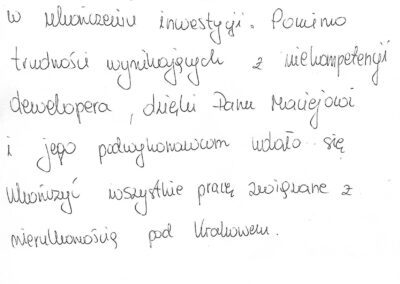 w ukończeniu inwestycji. Pomimo
trudności wynikających z niekompetencji
dewelopera, dzięki Panu Maciejowi
i jego podwykonawcom udało się
ukończyć wszystkie pracę związane z
nieruchomością pod Krakowem.